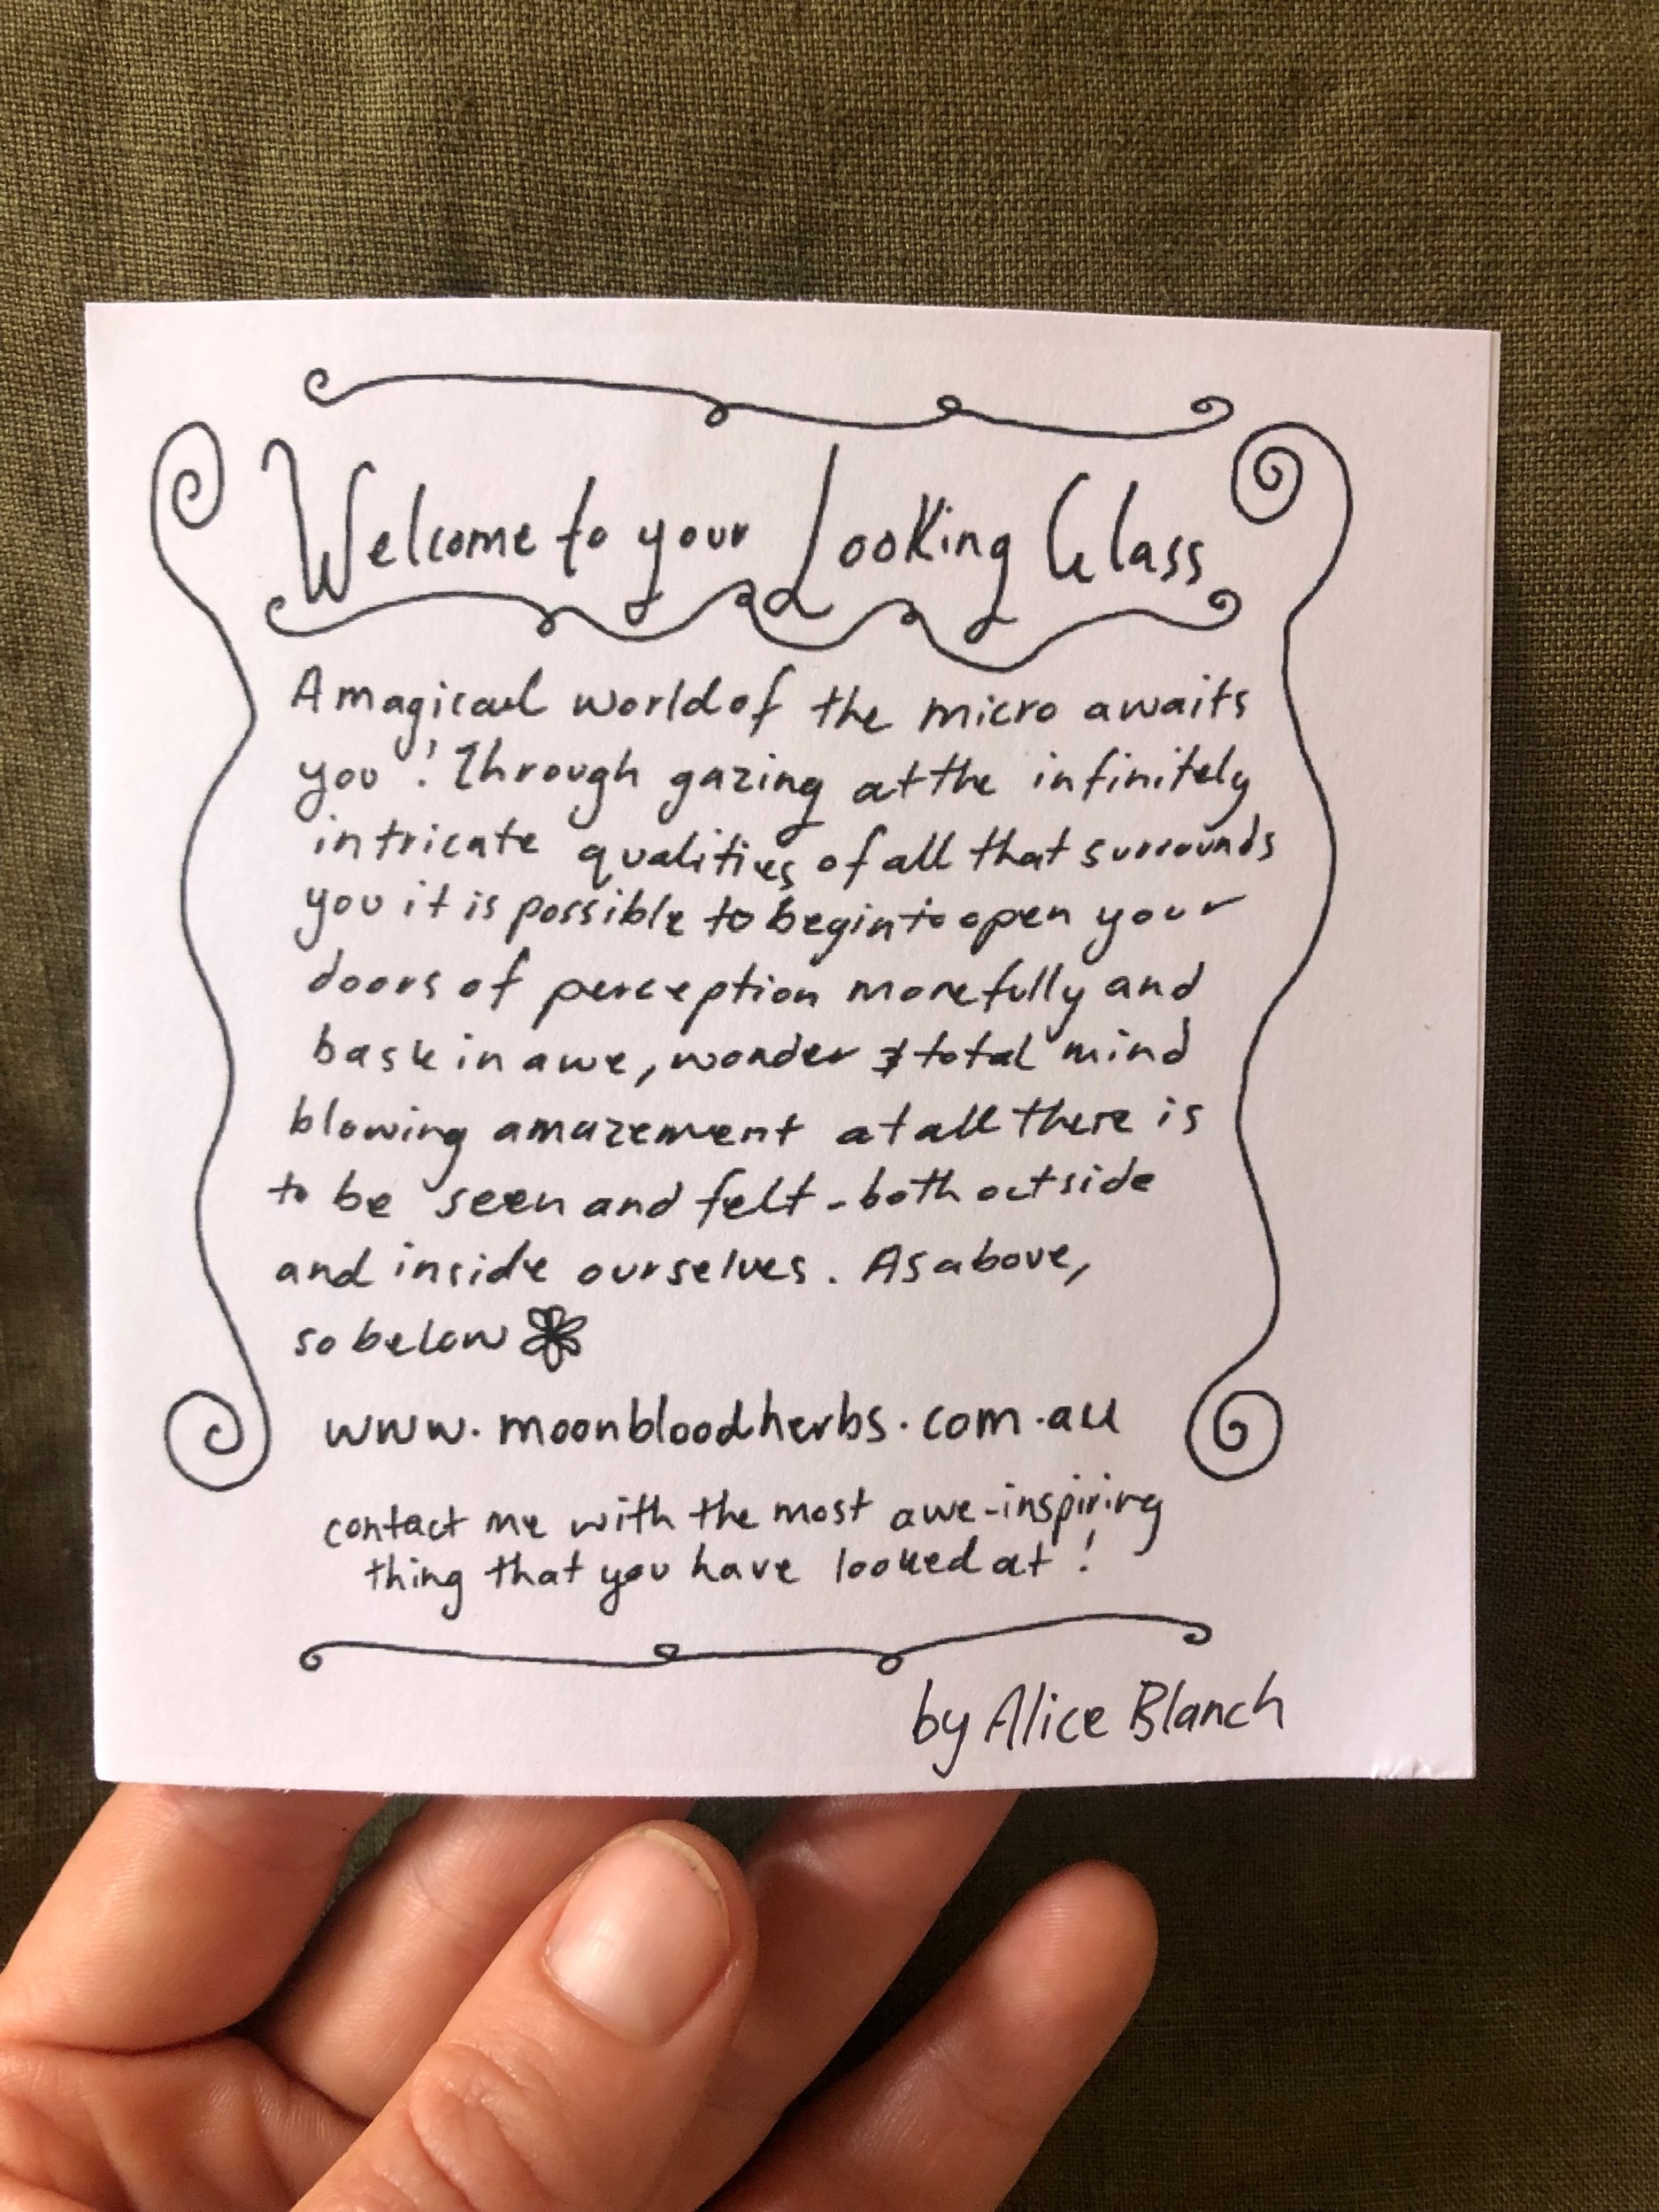 Welcome to your Looking Glass
A magical world of the micro awaits
you! Through gazing at the infinitely
intricate qualities of all that surrounds
you it is possible to begin to open your
doors of perception more fully and
bask in awe, wonder & total mind
blowing amazement at all there is
to be seen and felt - both outside
and inside ourselves. As above,
so below
www.moonbloodherbs.com.au
contact me with the most awe-inspiring
thing that you have looked at!
by Alice Blanch